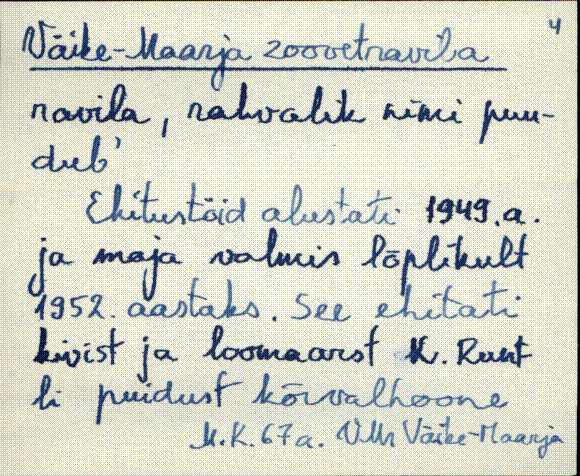 4
Väike-Maarja zoovetravila
ravila, rahvalik nimi puu-
dub'
Ehitustöid alustati 1949.a.
ja maja valmis lõplikult
1952. aastaks. See ehitati
kivist ja loomaarst K. Runt
li puidust kõrvalhoone
M.K. 67a. VMr Väike-Maarja